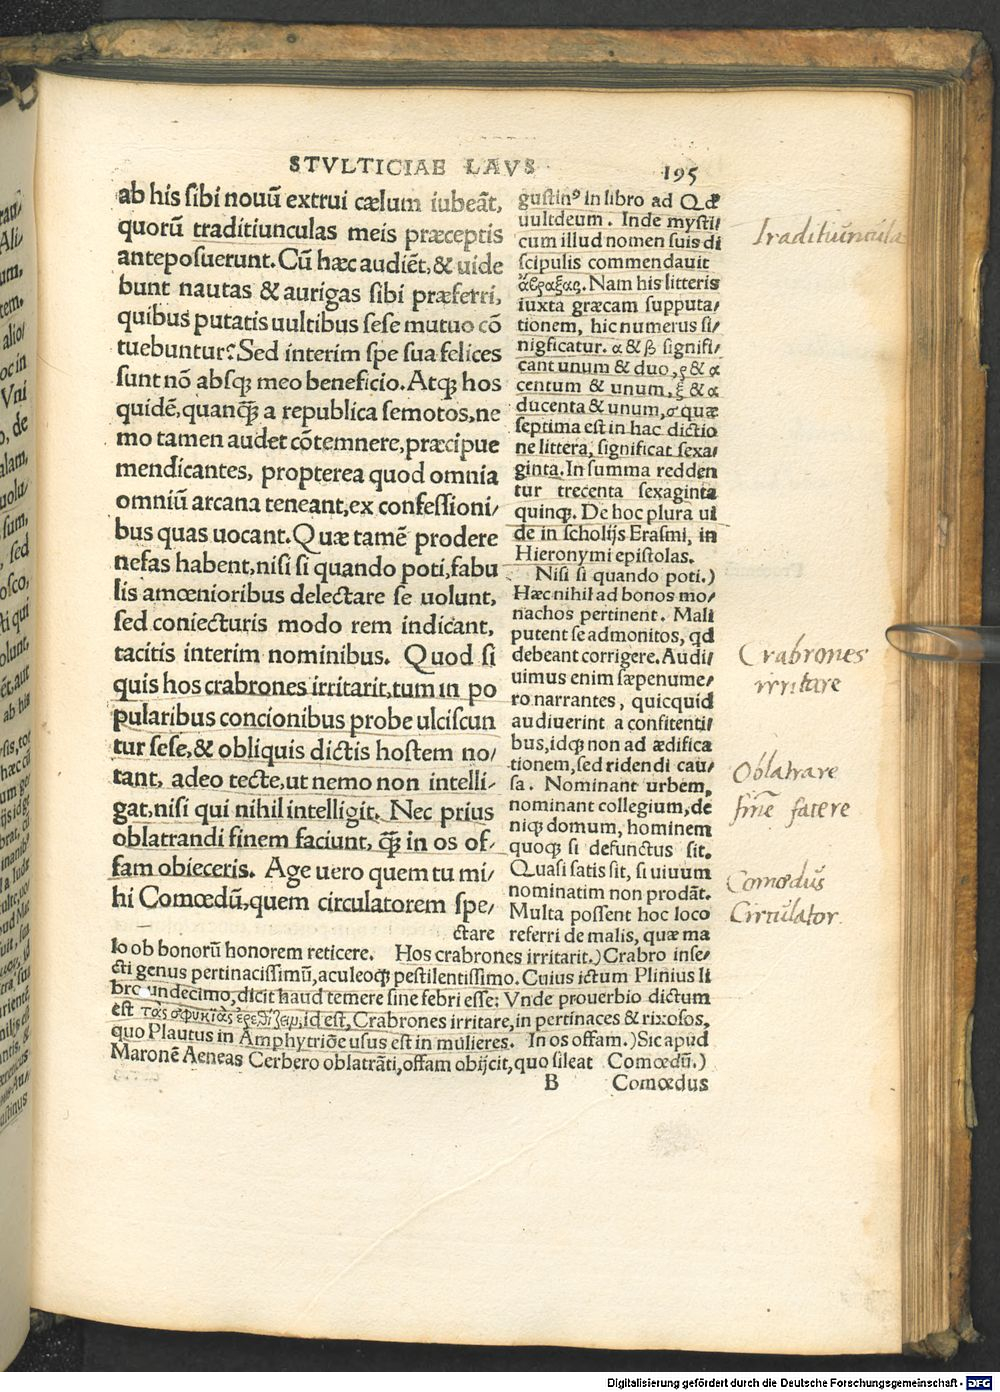 STVLTICIAE LAVS
195
ab his sibi nouũ extrui cælum iubeãt,
quorũ traditiunculas meis præceptis
anteposuerunt. Cũ hæc audiẽt, & uide
bunt nautas & aurigas sibi præferri,
quibus putatis uultibus sese mutuo cõ
tuebuntur? Sed interim spe sua felices
sunt nõ absqꝫ meo beneficio. Atqꝫ hos
quidẽ, quanqꝫ̃ a republica semotos, ne
mo tamen audet cõtemnere, præcipue
mendicantes, propterea quod omnia
omniũ arcana teneant, ex confessioni/
bus quas uocant. Quæ tamẽ prodere
nefas habent, nisi si quando poti, fabu
lis amœnioribus delectare se uolunt,
sed coniecturis modo rem indicant,
tacitis interim nominibus. Quod si
quis hos crabrones irritarit, tum in po
pularibus concionibus probe ulciscun
tur sese, & obliquis dictis hostem no/
tant, adeo tecte, ut nemo non intelli/
gat, nisi qui nihil intelligit. Nec prius
oblatrandi finem faciunt, qꝫ̃ in os of/
fam obieceris. Age uero quem tu mi/
hi Comœdũ, quem circulatorem spe/
ctare
gustinꝰ in libro ad Qd
uultdeum. Inde mysti/
cum illud nomen suis di
scipulis commendauit
Nam his litteris
iuxta græcam supputa/
tionem, hic numerus si/
nigficatur. α & β signifi/
cant unum & duo, ρ & α
centum & unum, ξ & α
ducenta & unum, σ quæ
septima est in hac dictio
ne littera, significat sexa/
ginta. In summa redden
tur trecenta sexaginta
quinqꝫ. De hoc plura ui
de in scholijs Erasmi, in
Hieronymi epistolas.
Nisi si quando poti.)
Hæc nihil ad bonos mo/
nachos pertinent. Mali
putent se admonitos, qd
debeant corrigere. Audi/
uimus enim sæpenume/
ro narrantes, quicquid
audiuerint a confitenti/
bus, idqꝫ non ad ædifica
tionem, sed ridendi cau/
sa. Nominant urbem,
nominant collegium, de
niqꝫ domum, hominem
quoqꝫ si defunctus sit.
Quasi satis sit, si uiuum
nominatim non prodãt.
Multa possent hoc loco
referri de malis, quæ ma
lo ob bonorũ honorem reticere. Hos crabrones irritarit.) Crabro inse/
cti genus pertinacissimũ, aculeoqꝫ pestilentissimo. Cuius ictum Plinius li
bro undecimo, dicit haud temere sine febri esse: Vnde prouerbio dictum
est τὰς σφυκιὰς ἐρεθίζειν, id est, Crabrones irritare, in pertinaces & rixosos,
quo Plautus in Amphytriõe usus est in mulieres. In os offam.) Sic apud
Maronẽ Aeneas Cerbero oblatrãti, offam obijcit, quo sileat Comœdũ.)
B Comœdus
Traditiuncula
Crabrones
irritare
Oblatrare
Comœdus
Circulator.
Digitalisierung gefördert durch die Deutsche Forschungsgemeinschaft - DFG